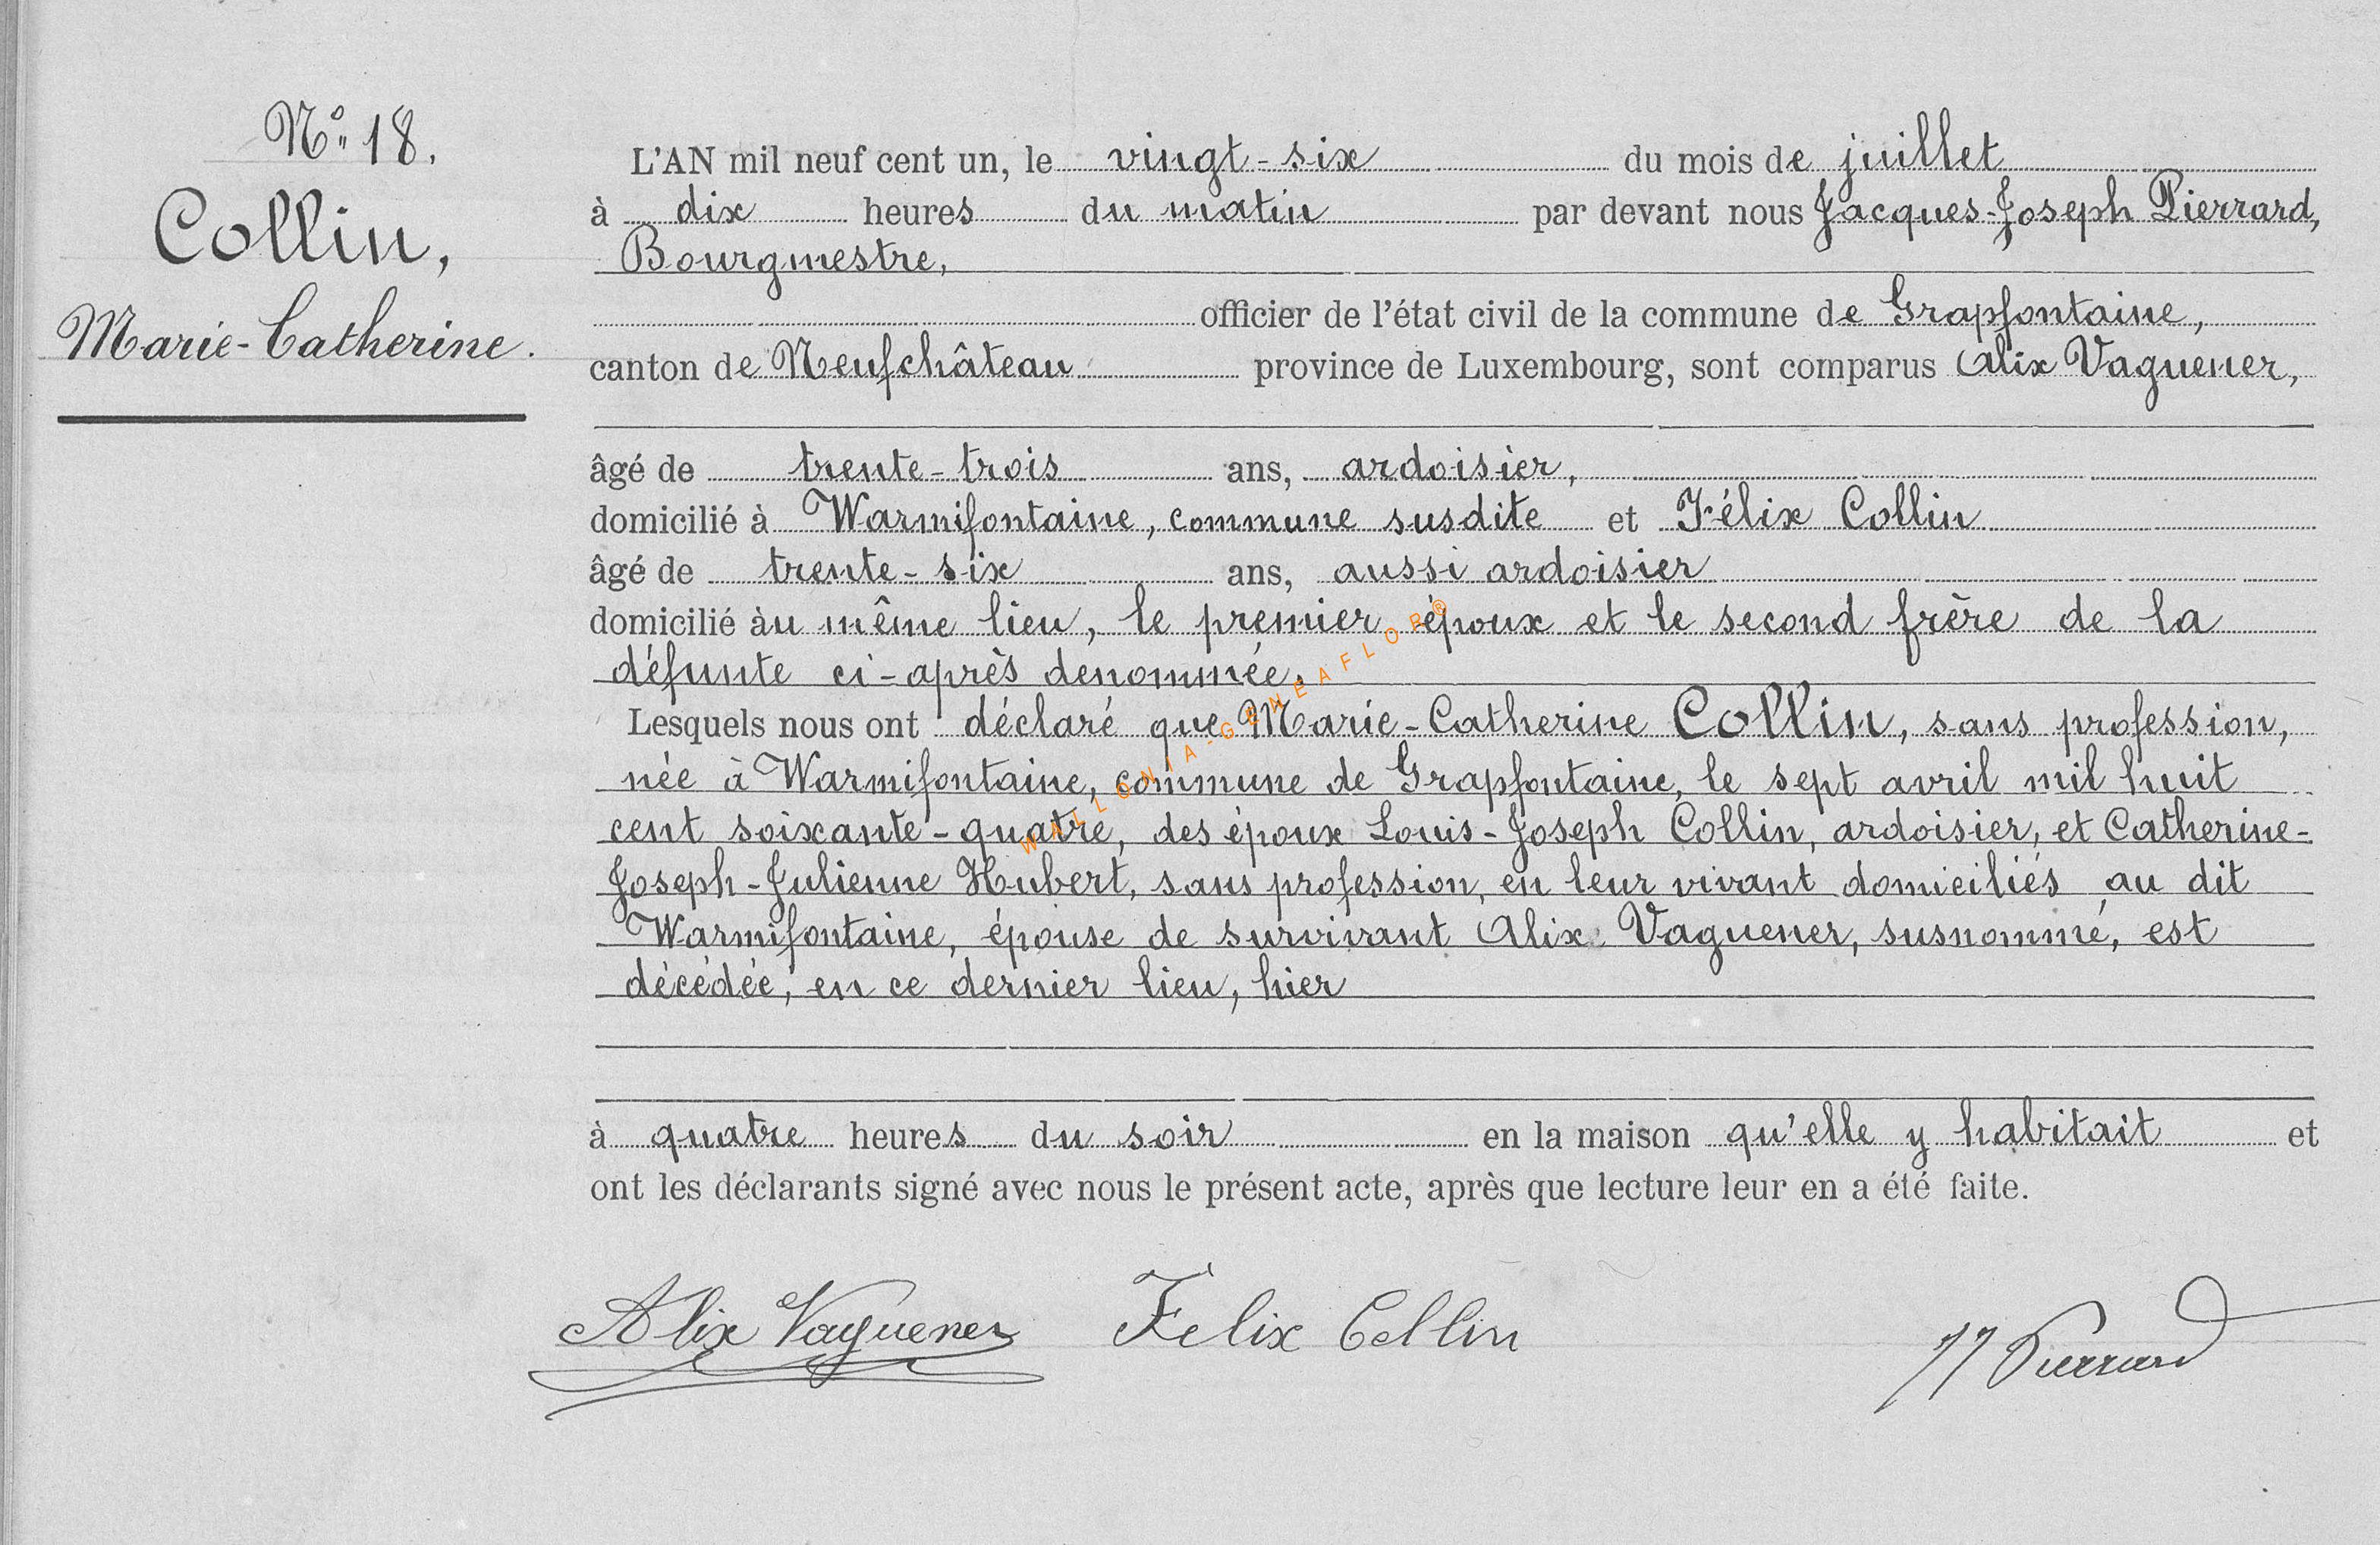 N° 18.
Collin,
Marie-Catherine.
L'AN mil neuf cent un, le vingt-six du mois de juillet
à dix heures du matin par devant nous Jacques-Joseph Pierrard,
Bourgmestre,
officier de l'état civil de la commune de Grapfontaine,
canton de Neufchâteau province de Luxembourg, sont comparus Alix Vaguener,
âgé de trente-trois ans, ardoisier,
domicilié à Warmifontaine, commune susdite et Félix Collin
âgé de trente-six ans, aussi ardoisier
domicilié àu même lieu, le premier époux et le second frère de la
défunte ci-après denommée.
Lesquels nous ont déclaré que Marie-Catherine Collin, sans profession,
née à Warmifontaine, commune de Grapfontaine, le sept avril mil huit
cent soixante-quatre, des époux Louis-Joseph Collin, ardoisier, et Catherine-
Joseph-Julienne Hubert, sans profession, en leur vivant domiciliés au dit
Warmifontaine, épouse de survivant Alix Vaguener, susnommé, est
décédée, en ce dernier lieu, hier
à quatre heures du soir en la maison qu'elle y habitait et
ont les déclarants signé avec nous le présent acte, après que lecture leur en a été faite.
Alix Vaguener Felix Collin JJ Pierrard
WALLONIA-GENEAFLOR®